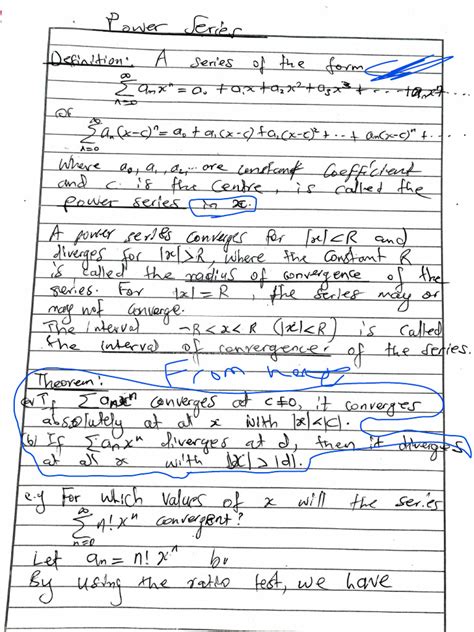 Power Series
Definition: A series of the form
∞
∑ aₙxⁿ = a₀ + a₁x + a₂x² + a₃x³ + ... + aₙxⁿ
n=0
or
∞
∑ aₙ(x-c)ⁿ = a₀ + a₁(x-c) + a₂(x-c)² + ... + aₙ(x-c)ⁿ + ...
n=0
where a₀, a₁, a₂... are constant Coefficient
and c is the Centre, is called the
power series in x.
A power series converges for |x|<R and
diverges for |x|>R, where the constant R
is called the radius of convergence of the
series. For |x| = R, the series may or
may not converge.
The interval -R<x<R (|x|<R) is called
the interval of convergence of the series.
From here
Theorem:
(a) If ∑ aₙxⁿ converges at c≠0, it converges
absolutely at at x with |x|<|c|.
(b) If ∑aₙxⁿ diverges at d, then it diverges
at all x with |x|>|d|.
e.g For which values of x will the series
∞
∑ n!xⁿ convergent?
n=0
Let aₙ = n! xⁿ
By using the ratio test, we have